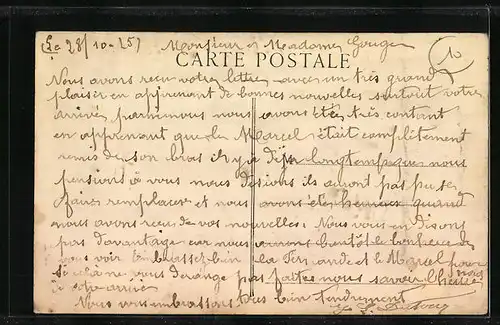 Le 28/10-25
Monsieur et Madame Gouge
10
CARTE POSTALE
Nous avons reçu votre lettre avec un très grand
plaisir en apprenant de bonnes nouvelles surtout votre
arrivé parmi nous nous avons étés très contant
en apprenant que le Marcel était complètement
remis de son bras il y a déjà longtemps que nous
pensions à vous nous desions ils auront pas pu se
faire remplacer et nous avons étés heureux quand
nous avons reçu de vos nouvelles. Nous vous en disons
pas d'avantage car nous aurons bientôt le bonheur de
vous voir Embrassez bien la Fernande et le Marcel pour nous
si cela ne vous dérange pas faites nous savoir l'heure
Nous vous embrassons très bien tendrement